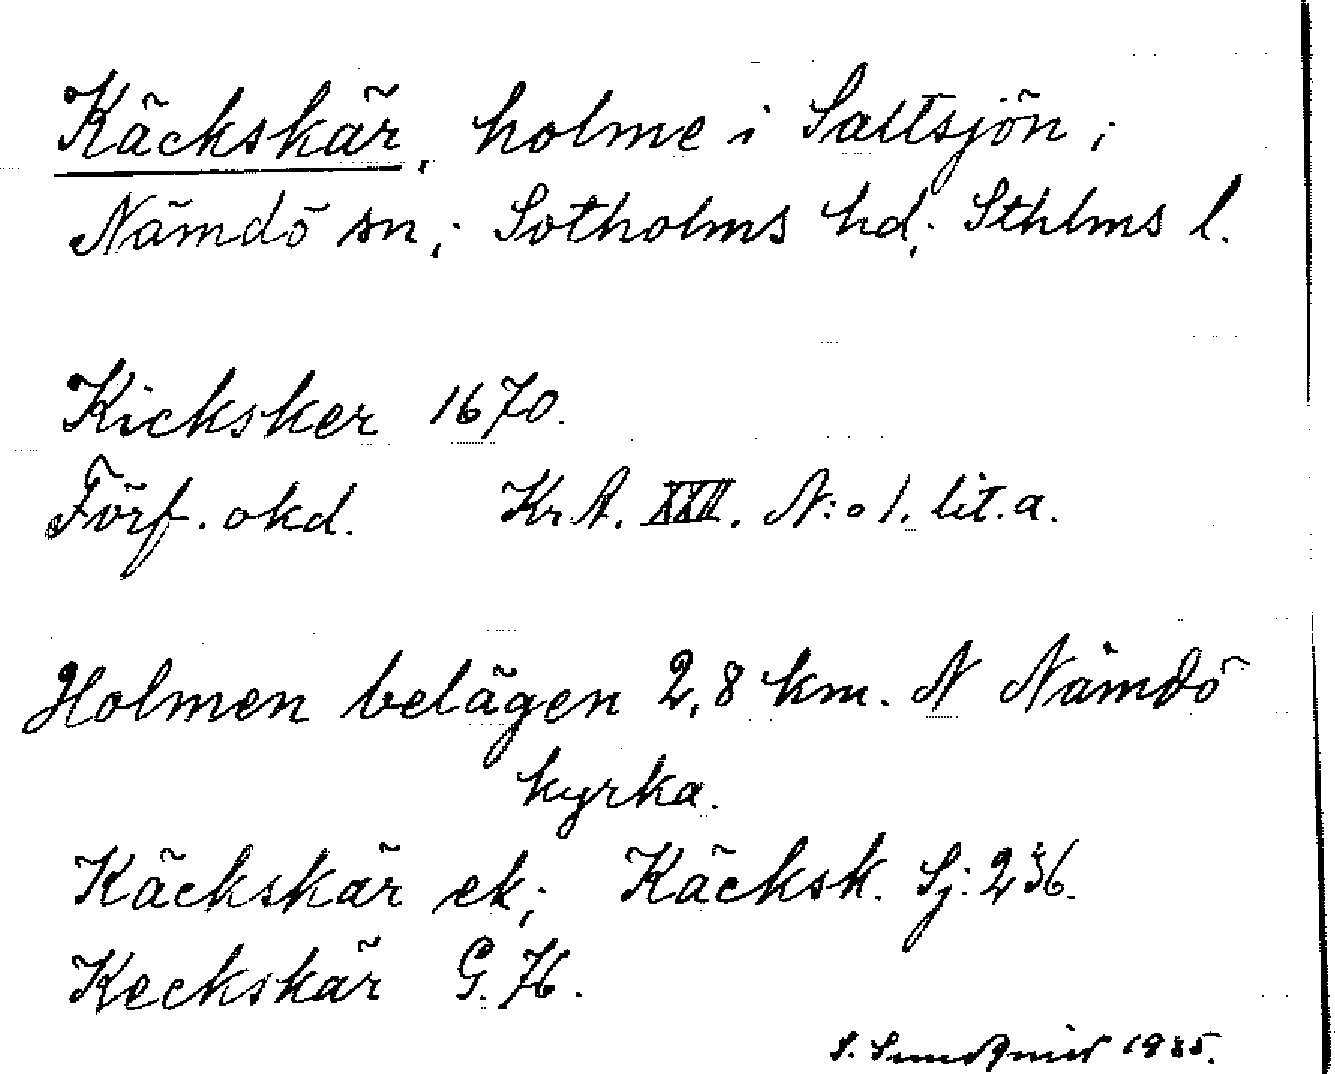 Käckskär, holme i Saltsjön;
Nämdö sn,; Sotholms hd,; Sthlms l.
Kicksker 1670.
Förf. okd. KrA. XXII. N:o 1. lit. a.
Holmen belägen 2,8 km. N Nämdö
kyrka.
Käckskär ek,; Käcksk. Sj: 236.
Keckskär G.H.
S. 1935.